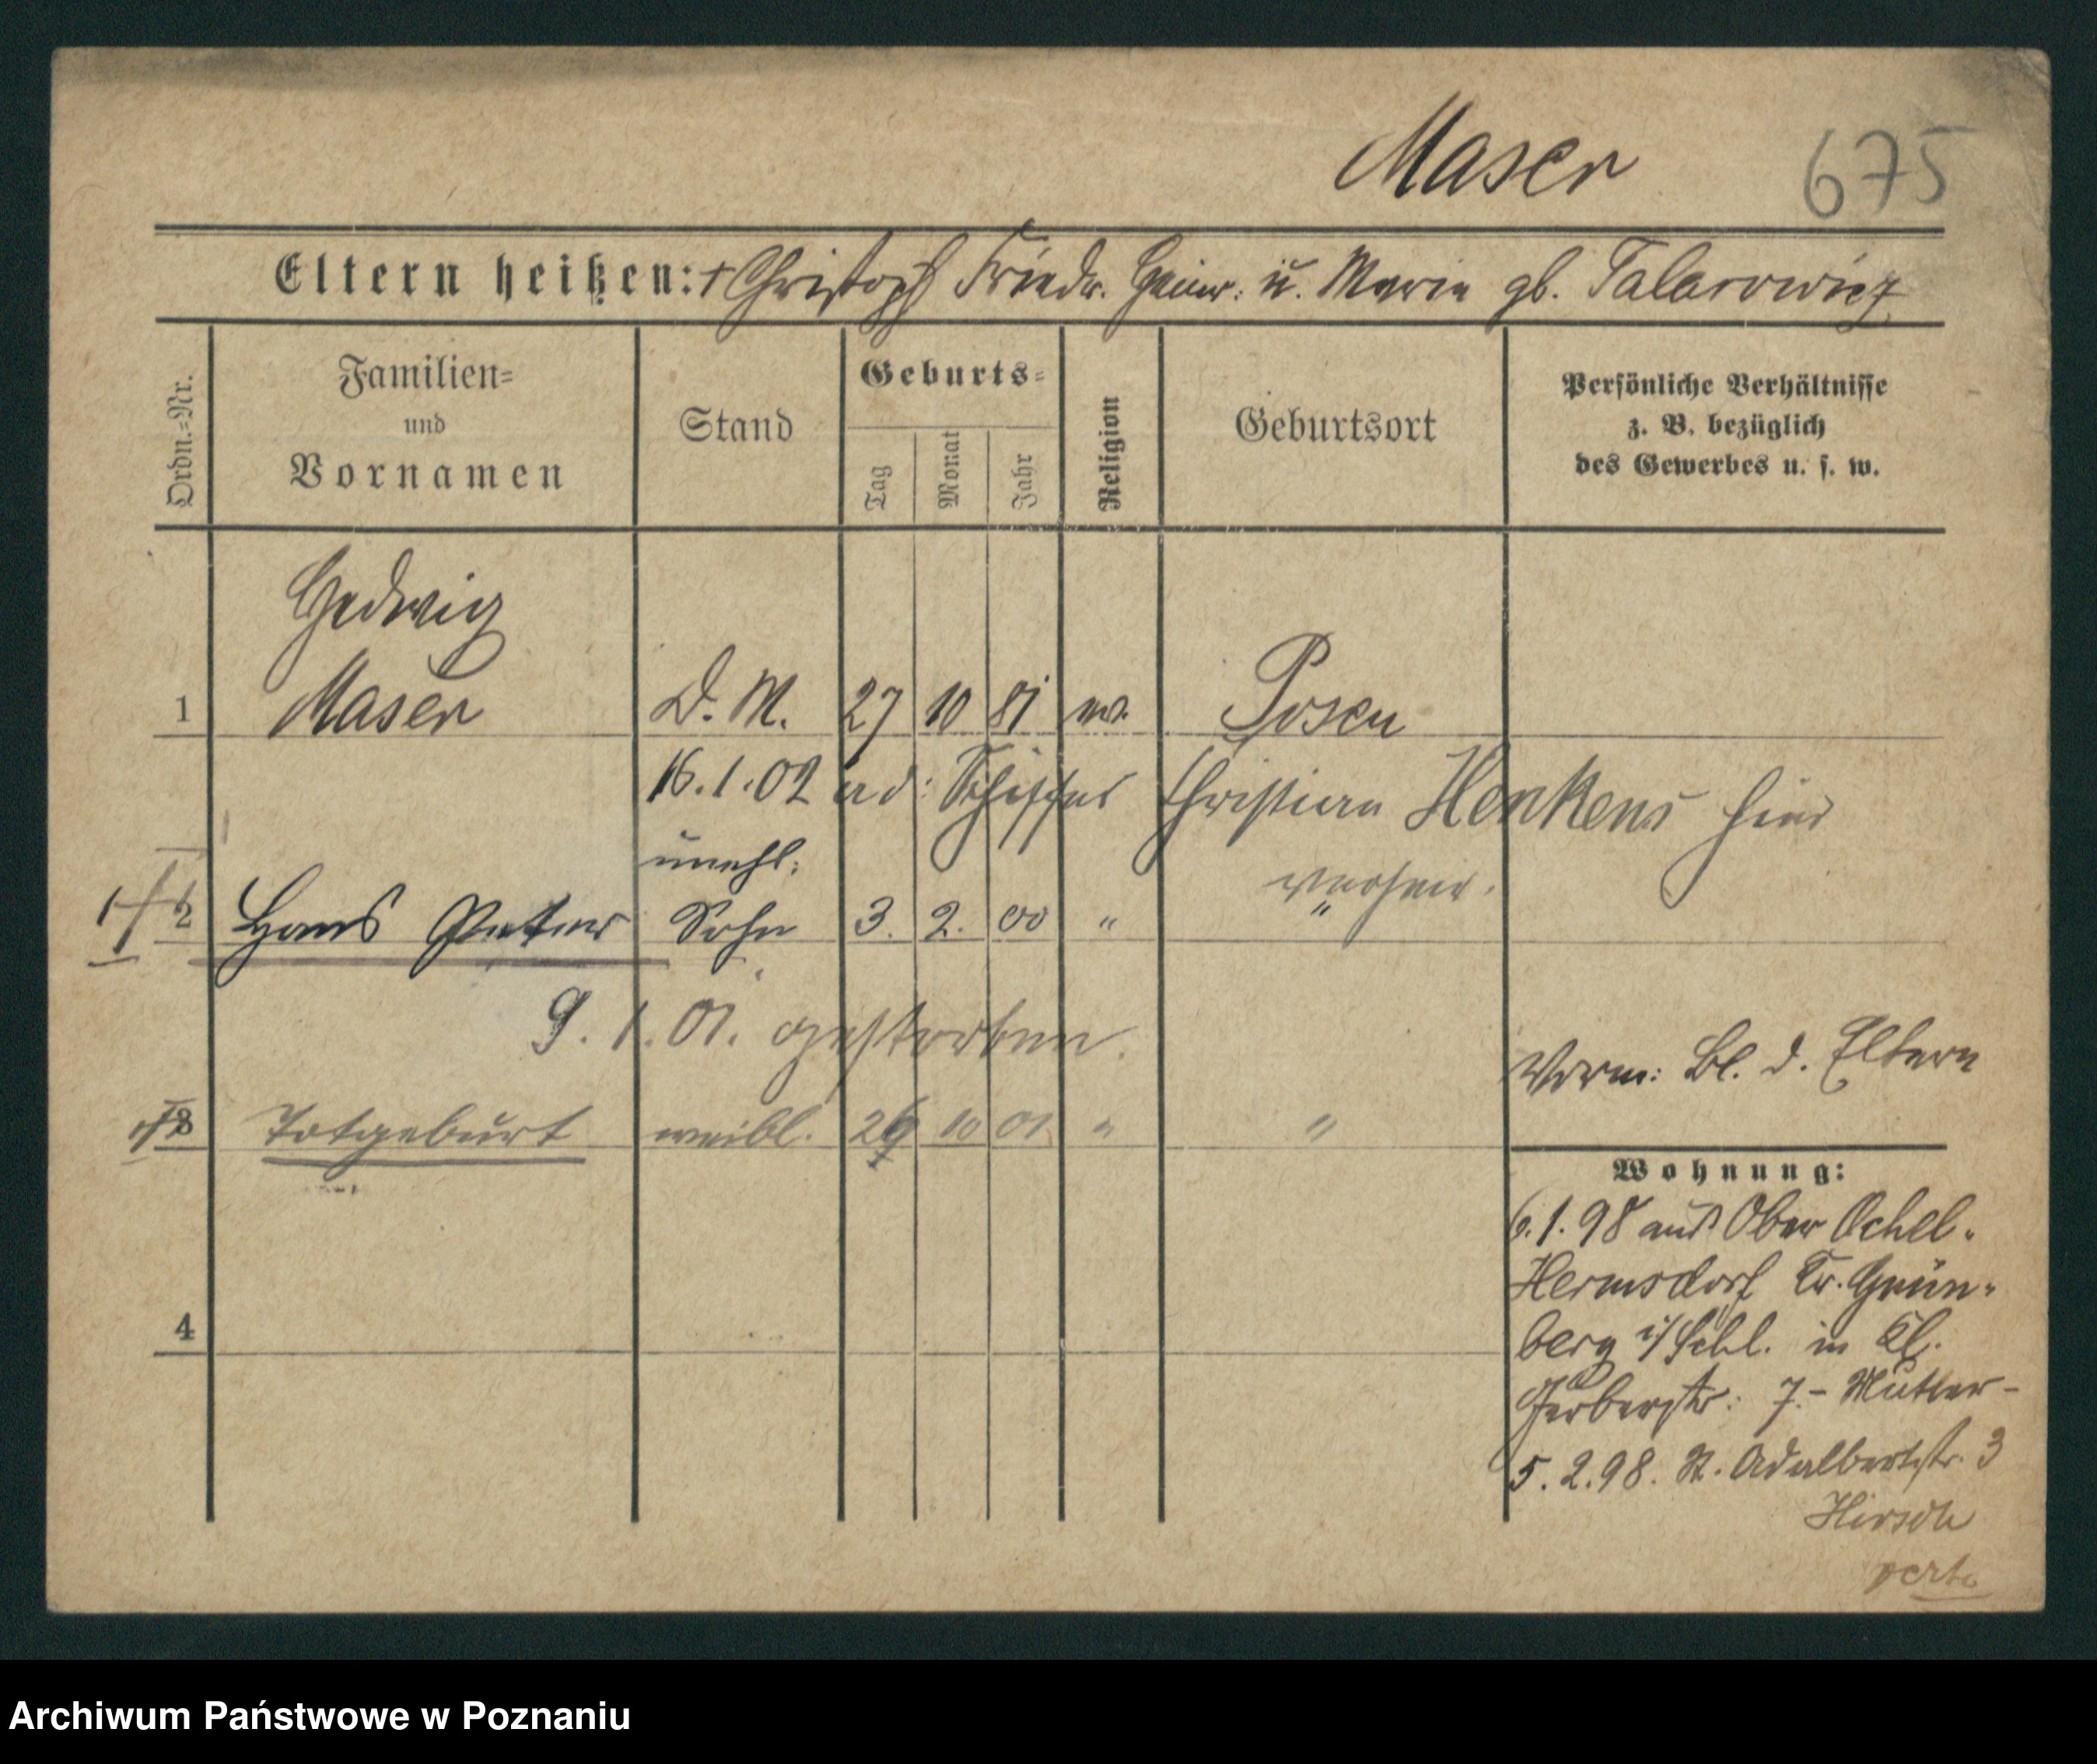 Maser 675
Eltern heißen: + Christoph Friedr. Heinr. u. Marie gb. Talarowicz
Ordn.=Nr.
Familien=
und
Vornamen
Stand
Geburts=
Tag
Monat
Jahr
Religion
Geburtsort
Persönliche Verhältnisse
z. B. bezüglich
des Gewerbes u. s. w.
Hedwig
1 Maser D. M. 27 10 81 ev. Posen
16.1.02 Schiffer Christian Henkens hier
unehl.
2 Hans Peter Sohn 3. 2. 00 " "
9. 1. 01. gestorben.
Vorm: Bl. d. Eltern
3 Totgeburt weibl. 26 10 01 " "
Wohnung:
6.1.98 aus Ober Ochel-
Hermsdorf Kr. Grün-
berg i/Schl. in Kl.
Gerberstr: 7.- Mutter-
5.2.98. St. Adalbertstr. 3
Hirsch
verte
4
Archiwum Państwowe w Poznaniu